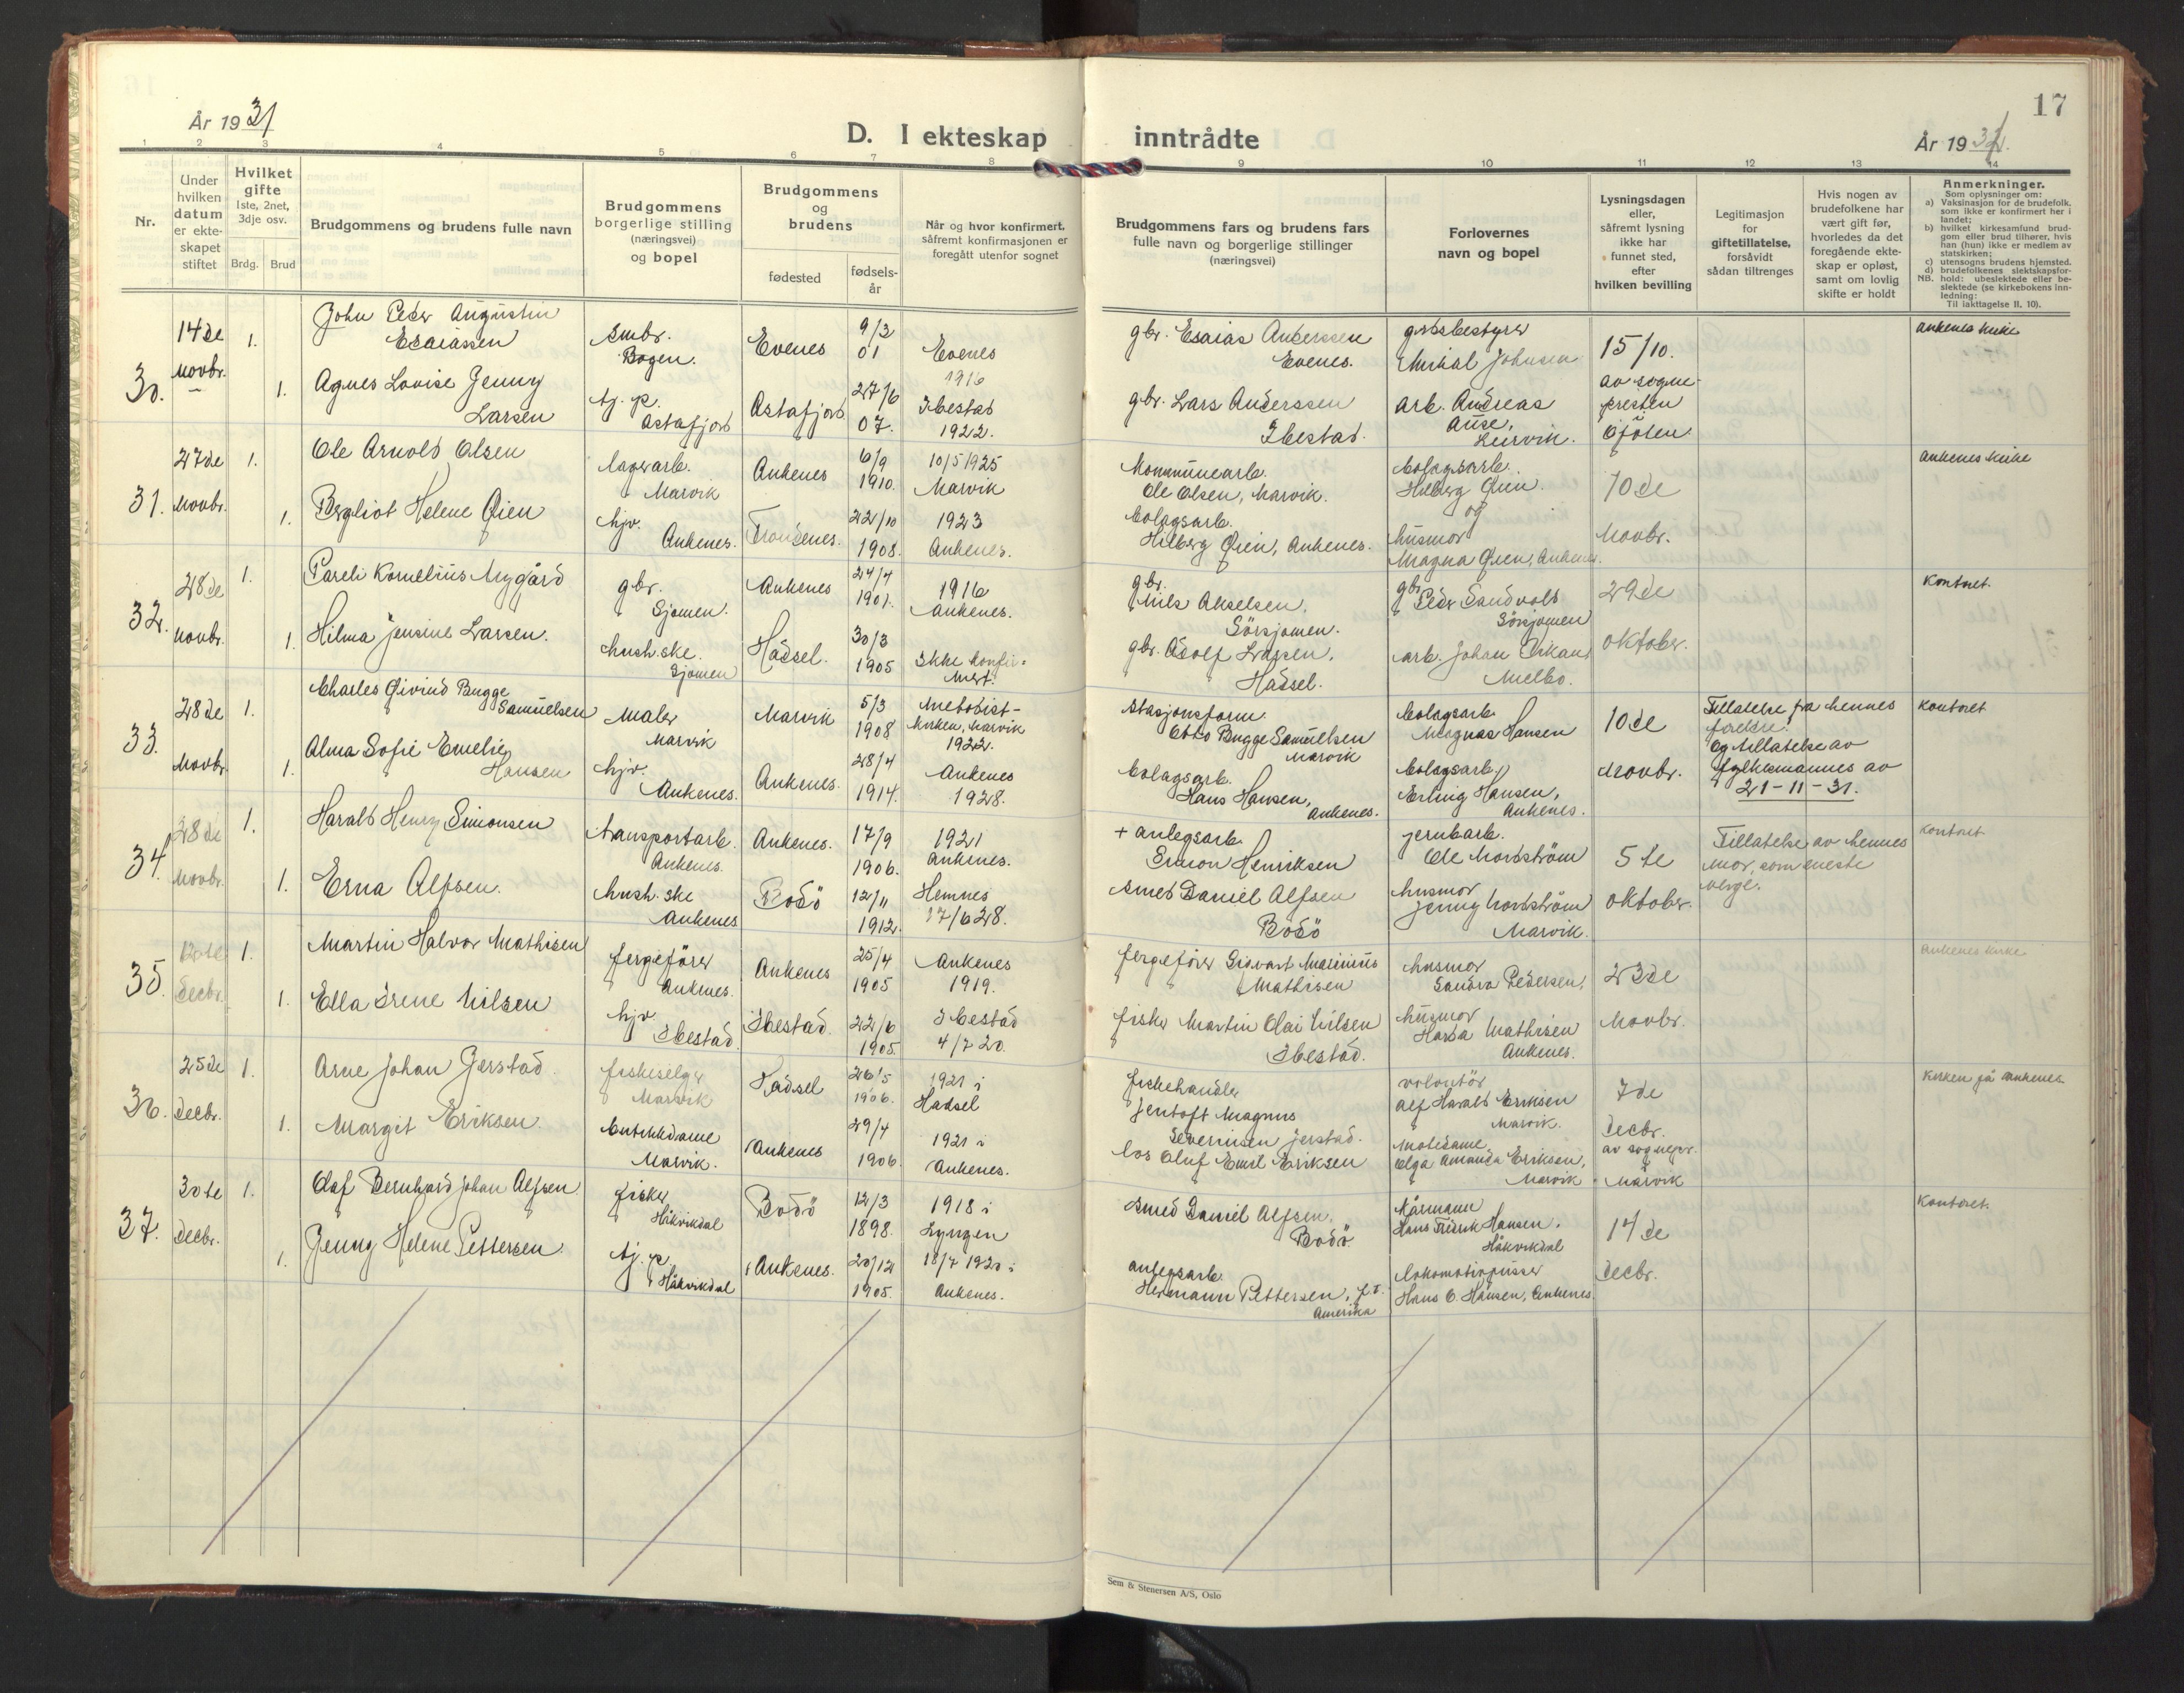 År 1931
D. I ekteskap inntrådte
17
År 1931.
1 2 3 4 5 6 7 8 9 10 11 12 13 14
Nr.
Under hvilken datum er ekteskapet stiftet
Hvilket gifte
1ste, 2net, 3dje osv.
Brdg. Brud
Brudgommens og brudens fulle navn
Brudgommens borgerlige stilling (næringsvei) og bopel
Brudgommens og brudens
fødested
fødsels-år
Når og hvor konfirmert, såfremt konfirmasjonen er foregått utenfor sognet
Brudgommens fars og brudens fars fulle navn og borgerlige stillinger (næringsvei)
Forlovernes navn og bopel
Lysningsdagen eller, såfremt lysning ikke har funnet sted, efter hvilken bevilling
Legitimasjon for giftetillatelse, forsåvidt sådan tiltrenges
Hvis nogen av brudefolkene har vært gift før, hvorledes da det foregående ekteskap er opløst, samt om lovlig skifte er holdt
Anmerkninger.
Som oplysninger om:
a) Vaksinasjon for de brudefolk, som ikke er konfirmert her i landet;
b) hvilket kirkesamfund brudgom eller brud tilhører, hvis han (hun) ikke er medlem av statskirken;
c) utensogns brudens hjemsted.
d) brudefolkenes slektskapsforhold: ubeslektede eller beslektede (se kirkebokens innledning:
NB. Til iakttagelse II, 10).
30. 14de Novbr. 1. John Peder Augustin Esaiassen
smbr. Bogen. Evenes 9/3 01 Evenes 1916
gbr. Esaias Anderssen Evenes.
Mikal Johnsen
15/10. av sogne-presten
Ankenes kirke
1. Agnes Lovise Jenny Larsen
tj. p. Astafjord Astafjord 27/6 07. Ibestad 1922.
gbr. Lars Anderssen Ibestad.
arb. Andreas
31. 27de Novbr. 1. Ole Arnold Olsen
lagerarb. Narvik Ankenes 6/9 1910. 10/5 1925 Narvik
Kommunearb. Ole Olsen, Narvik.
bolagsarb. Hilberg Øien. og
10de Novbr.
Ankenes kirke
1. Bergliot Helene Øien
hjv. Ankenes. Trondenes. 22/10 1908. 1923 Ankenes.
bolagsarb. Hilberg Øien, Ankenes.
husmor Magna Øien, Ankenes.
32. 28de Novbr. 1. Pareli Kornelius Nygård
gbr. Sjomen. Ankenes 24/4 1901. 1916 Ankenes.
gbr. Nils Akselsen, Sörsjomen.
gbr. Peder Sandvold Sörsjomen
29de oktober.
Kontoret.
1. Hilma Jensine Larsen.
hush.ske. Sjomen Hadsel. 30/3 1905 Ikke konfir-mert.
gbr. Adolf Larsen, Hadsel.
arb. Johan Melbo.
33. 28de Novbr. 1. Charles Øivind Bugge Samuelsen
Maler Narvik Narvik 5/3 1908 Metodist-kirken, Narvik 1922.
Stasjonsform. Otto Bugge Samuelsen Narvik
bolagsarb. Magnus Hansen
10de Novbr.
Tillatelse fra hennes foreldre. Og tillatelse av fylkesmannes av 21-11-31.
Kontoret
1. Alma Sofie Emelie Hansen
hjv. Ankenes. Ankenes. 28/4 1914. Ankenes 1928.
bolagsarb. Hans Hansen, Ankenes.
bolagsarb. Erling Hansen, Ankenes.
34. 28de Novbr. 1. Harald Henry Simonsen
transportarb. Ankenes. Ankenes. 17/9 1906. 1921 Ankenes.
+ anlegsarb. Simon Henriksen
jernbarb. Ole Nordström
5te oktober.
Tillatelse av hennes mor, som eneste verge.
Kontoret
1. Erna Alfsen.
hush.ske Ankenes Bodö 12/11 1912. Hemnes 17/6 28.
smed Daniel Alfsen Bodö
husmor Jenny Nordström Narvik.
35. 12te Decbr. 1. Martin Halvor Mathisen
fergeförer Ankenes. Ankenes 25/4 1905 Ankenes 1919.
fergeförer Sigvart Marinius Mathisen
husmor Sandra Pedersen,
23de Novbr.
Ankenes kirke
1. Ella Irene Nilsen
hjv. Ibestad. Ibestad. 22/6 1905. Ibestad 4/7 20.
fisker Martin Olai Nilsen Ibestad.
husmor Harda Mathisen Ankenes.
36. 25de Decbr. 1. Arne Johan Jerstad
fiskeselger Narvik Hadsel 26/5 1906. 1921 i Hadsel
fiskehandler Jentoft Magnus Severinsen Jerstad.
volontör Alf Harald Eriksen Narvik.
7de Decbr. av sognepr. Narvik
Kirken på Ankenes.
1. Margit Eriksen.
butikkdame Narvik. Ankenes 29/4 1906. 1921 i Ankenes.
los Oluf Emil Eriksen
Motedame Olga Amanda Eriksen, Narvik
37. 30te Decbr. 1. Olaf Bernhard Johan Alfsen
fisker Håkvikdal Bodö 12/3 1898. 1918 i Lyngen
smed Daniel Alfsen, Bodö.
Hans Fredrik Hansen. Håkvikdal
14de Decbr.
Kontoret.
1. Jenny Helene Pettersen
tj. p. Håkvikdal Ankenes. 20/12 1905. 18/7 1920 i Ankenes.
anlegsarb. Hermann Pettersen, f.t. Amerika
lokomotivpusser Hans O. Hansen, Ankenes
Sem & Stenersen A/S, Oslo